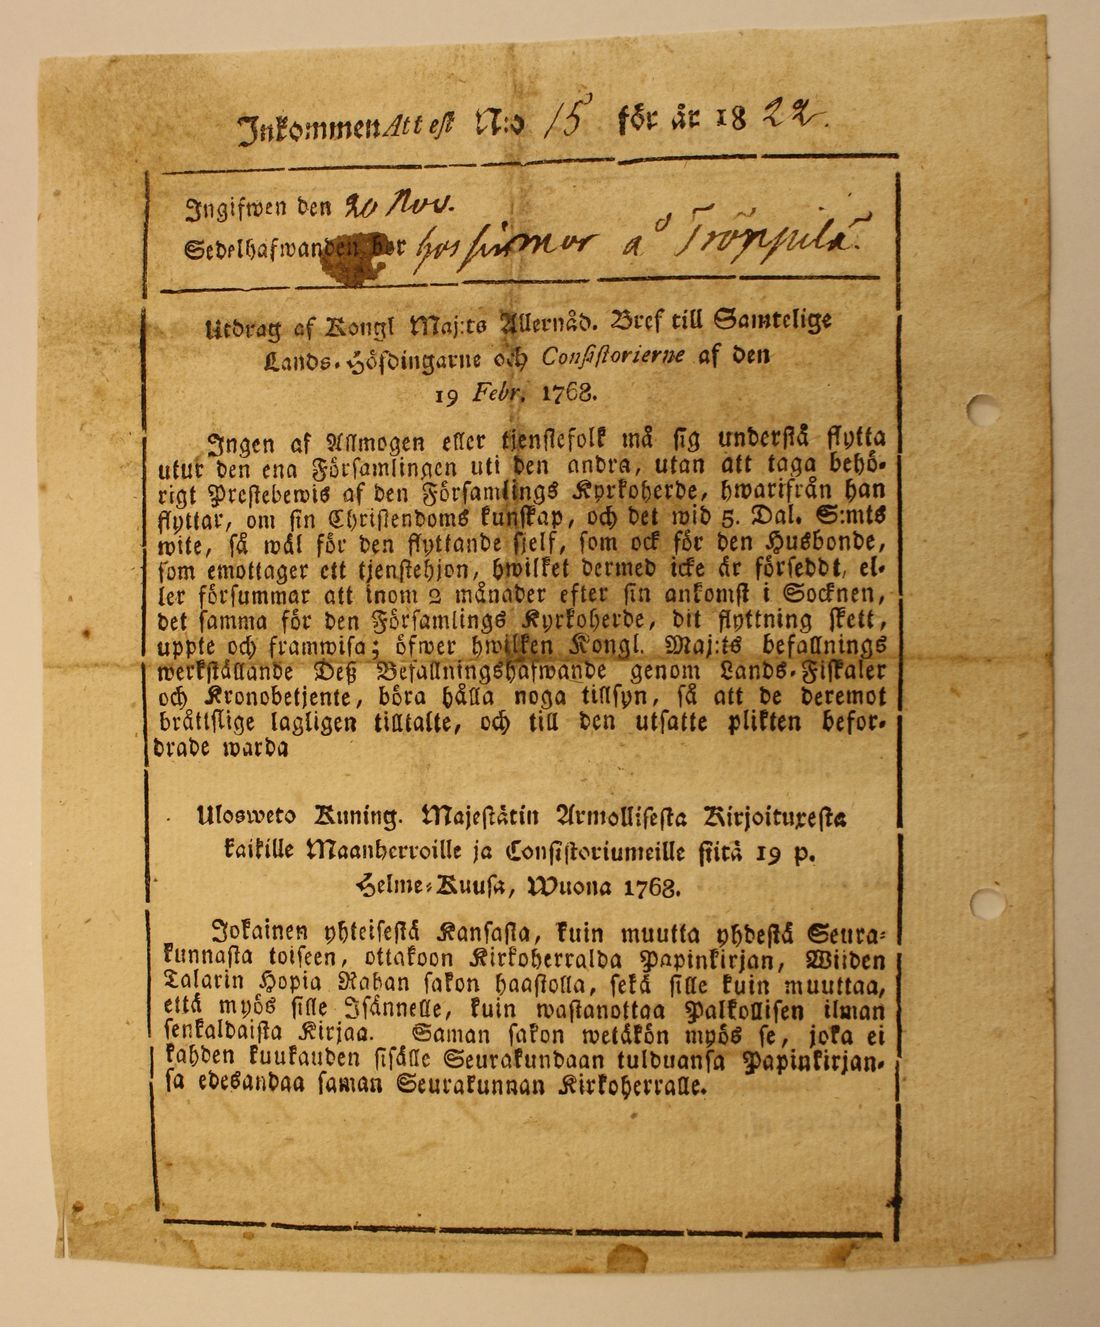 Inkommen Attest N:o 15 för år 1822.
Ingifwen den 20 Nov.
Sedelhafwanden bor hos å Tröppilä.
Utdrag af Kongl Maj:ts Allernåd. Bref till Samtelige
Lands-Höfdingarne och Consistorierne af den
19 Febr. 1768.
Ingen af Allmogen eller tjenstefolk må sig understå flytta
utur den ena Församlingen uti den andra, utan att taga behö-
rigt Prestebewis af den Församlings Kyrkoherde, hwarifrån han
flyttar, om sin Christendoms kunskap, och det wid 5. Dal. S:mts
wite, så wäl för den flyttande sjelf, som ock för den Husbonde,
som emottager ett tjenstehjon, hwilket dermed icke är förseddt, el-
ler försummar att inom 2 månader efter sin ankomst i Socknen,
det samma för den Församlings Kyrkoherde, dit flyttning skett,
uppte och framwisa; öfwer hwilken Kongl. Maj:ts befallnings
werkställande Deß Befallningshafwande genom Lands-Fiskaler
och Kronobetjente, böra hålla noga tillsyn, så att de deremot
bråttslige lagligen tilltalte, och till den utsatte plikten befor-
drade warda
Ulosweto Kuning. Majestätin Armollisesta Kirjoituxesta
kaikille Maanherroille ja Consistoriumeille siitä 19 p.
Helme-Kuusa, Wuona 1768.
Jokainen yhteisestä Kansasta, kuin muutta yhdestä Seura-
kunnasta toiseen, ottakoon Kirkoherralda Papinkirjan, Wiiden
Talarin Hopia Rahan sakon haastolla, sekä sille kuin muuttaa,
että myös sille Isännelle, kuin wastanottaa Palkollisen ilman
senkaldaista Kirjaa. Saman sakon wetäkön myös se, joka ei
kahden kuukauden sisälle Seurakundaan tulduansa Papinkirjan-
sa edesandaa saman Seurakunnan Kirkoherralle.